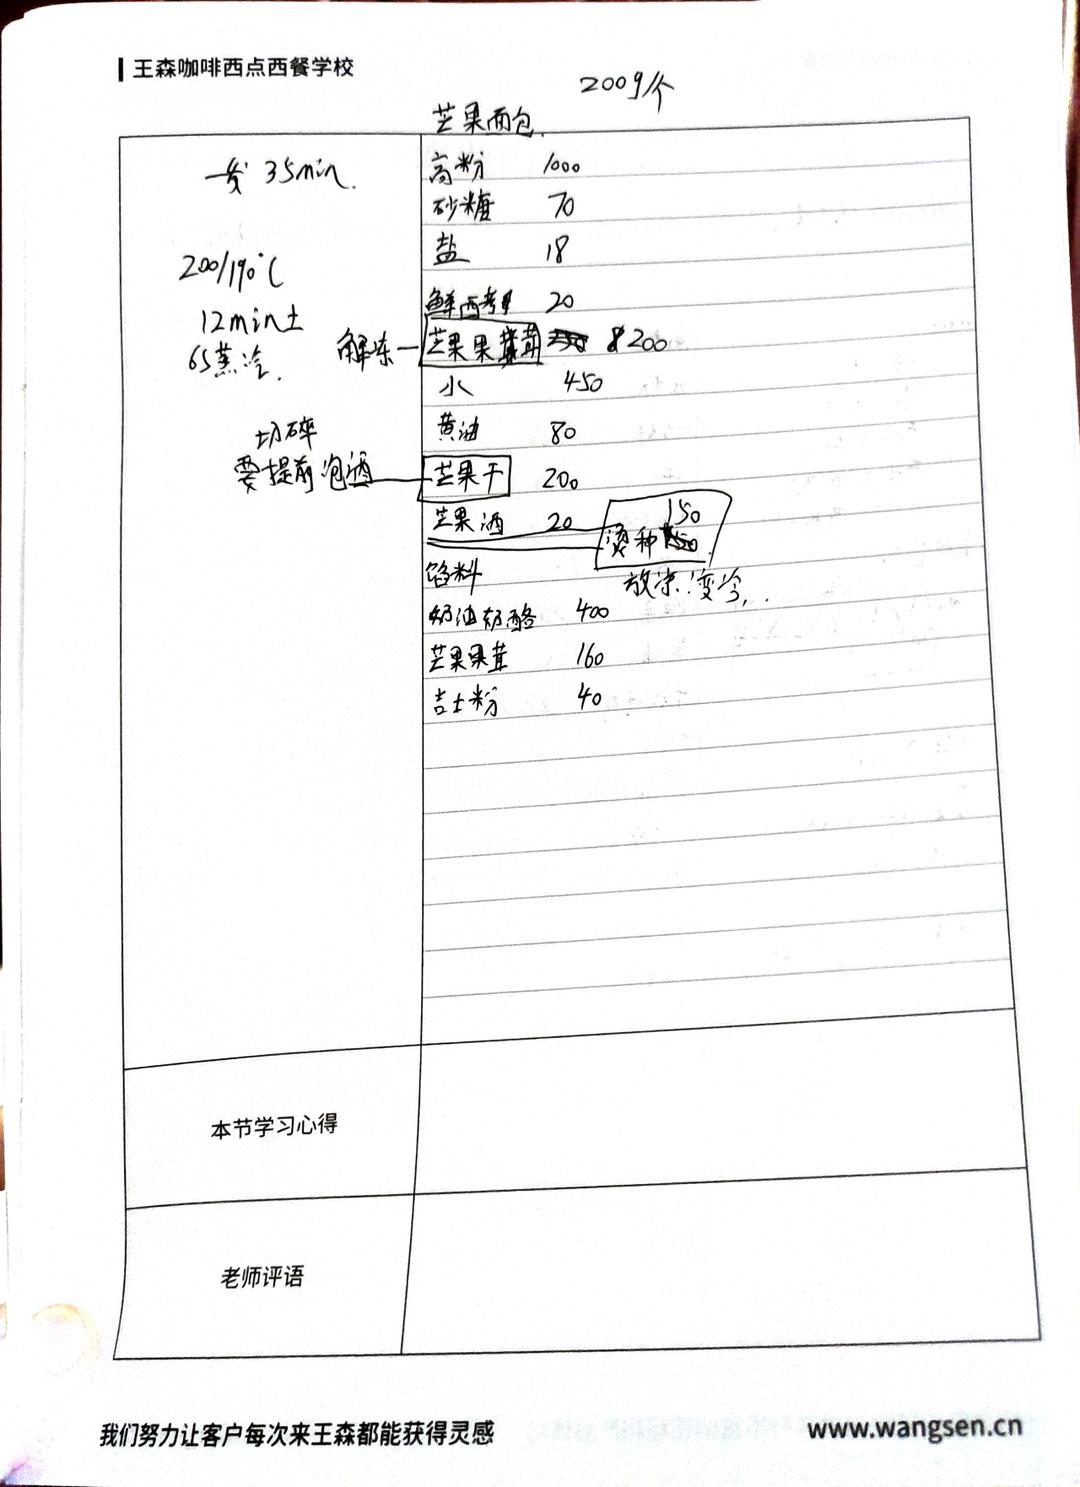 王森咖啡西点西餐学校
200g/个
芒果面包.
一发 35min.
高粉 1000
砂糖 70
盐 18
200/190℃
鲜酵母 20
12min±
解冻 芒果果茸 200
6S蒸汽.
水 450
黄油 80
切碎
要提前泡酒 芒果干 200
芒果酒 20
烫种 150
放凉变冷...
馅料
奶油奶酪 400
芒果果茸 160
吉士粉 40
本节学习心得
老师评语
我们努力让客户每次来王森都能获得灵感
www.wangsen.cn